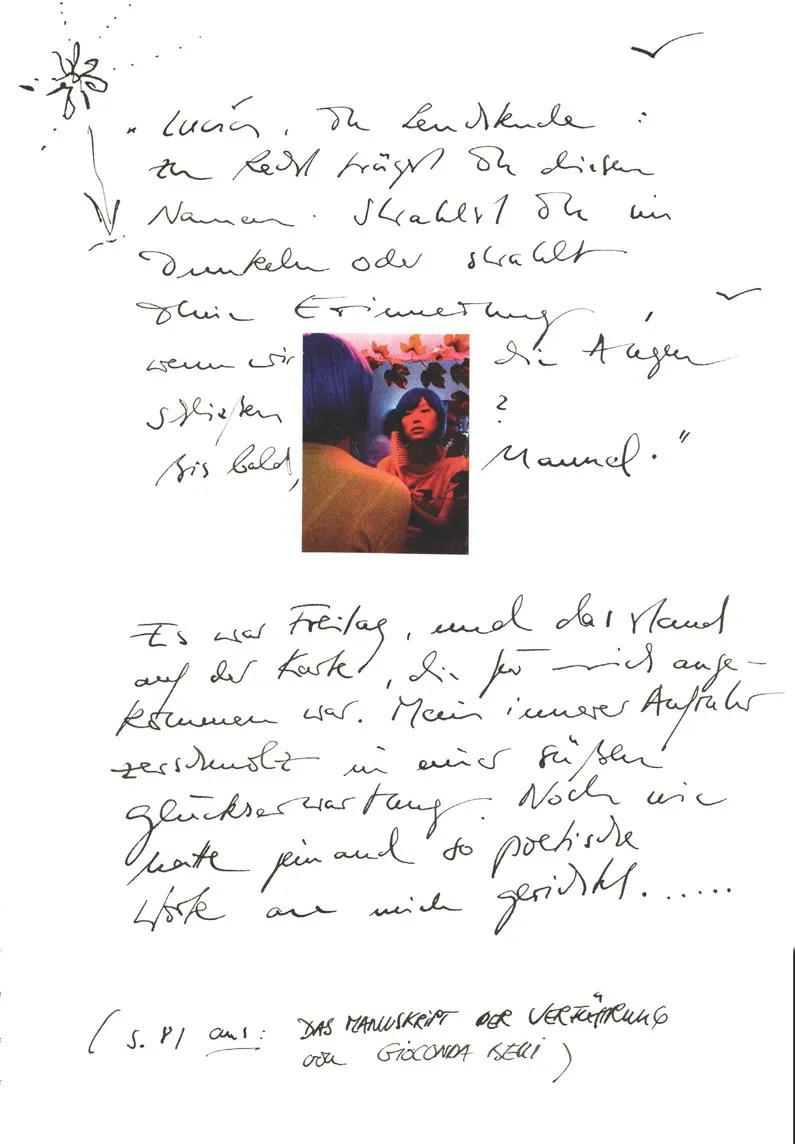 "Lucía, Du Leuchtende :
zu Recht trägst Du diesen
Namen. Strahlst Du im
Dunkeln oder strahlt
Deine Erinnerung,
wenn wir die Augen
schließen ?
Bis bald, Manuel."
Es war Freitag, und das stand
auf der Karte, die für mich ange-
kommen war. Mein innerer Aufruhr
zerschmolz in einer süßen
Glückserwartung. Noch nie
hatte jemand so poetische
Worte an mich gerichtet......
(S. 81 aus: DAS MANUSKRIPT DER VERFÜHRUNG
von GIOCONDA BELLI)